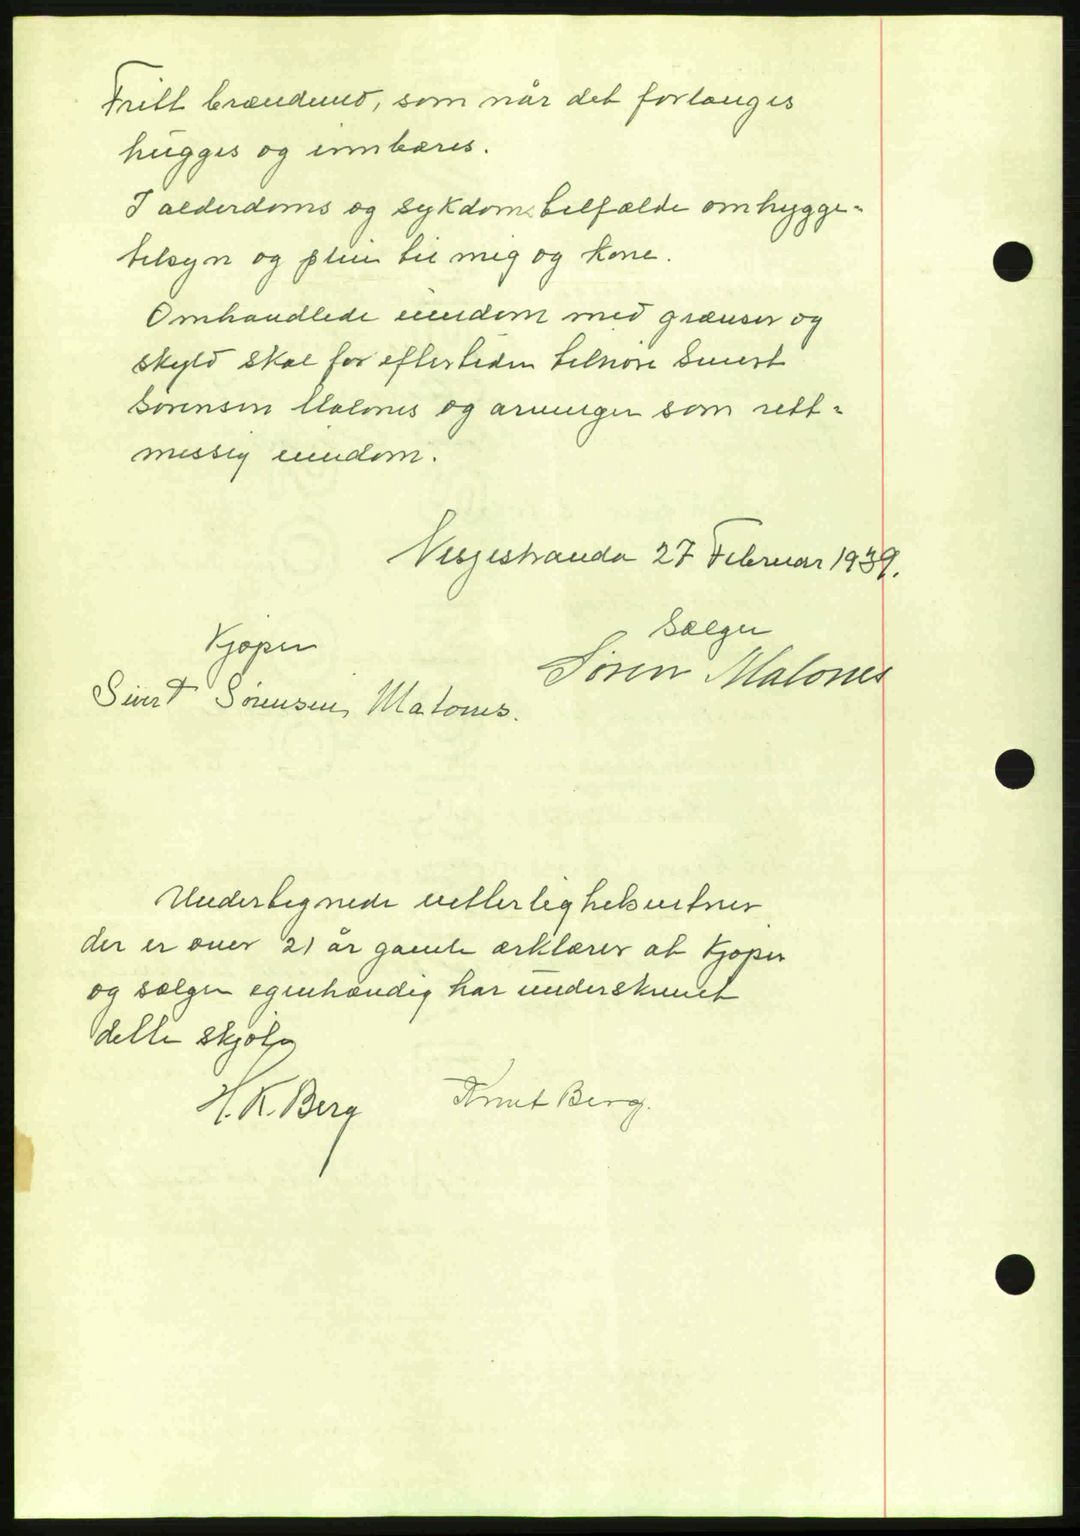 Fritt brændeved, som når det forlanges
hugges og innbæres.
I alderdoms og sykdoms tilfælde omhygge-
tilsyn og pleie til mig og kone.
Omhandlede eiendom med grænser og
skyld skal for eftertiden tilhøre Sivert
Sørensen Malones og arvinger som rett-
messig eiendom.
27 Februar 1939.
Kjøper
Sælger
Sivert Sørensen Malones.
Søren Malones
Undertegnede vitterlighetsvitner
der er over 21 år gamle ærklærer at kjøper
og sælger egenhændig har underskrevet
dette skjøte
H. K. Berg
Knut Berg.